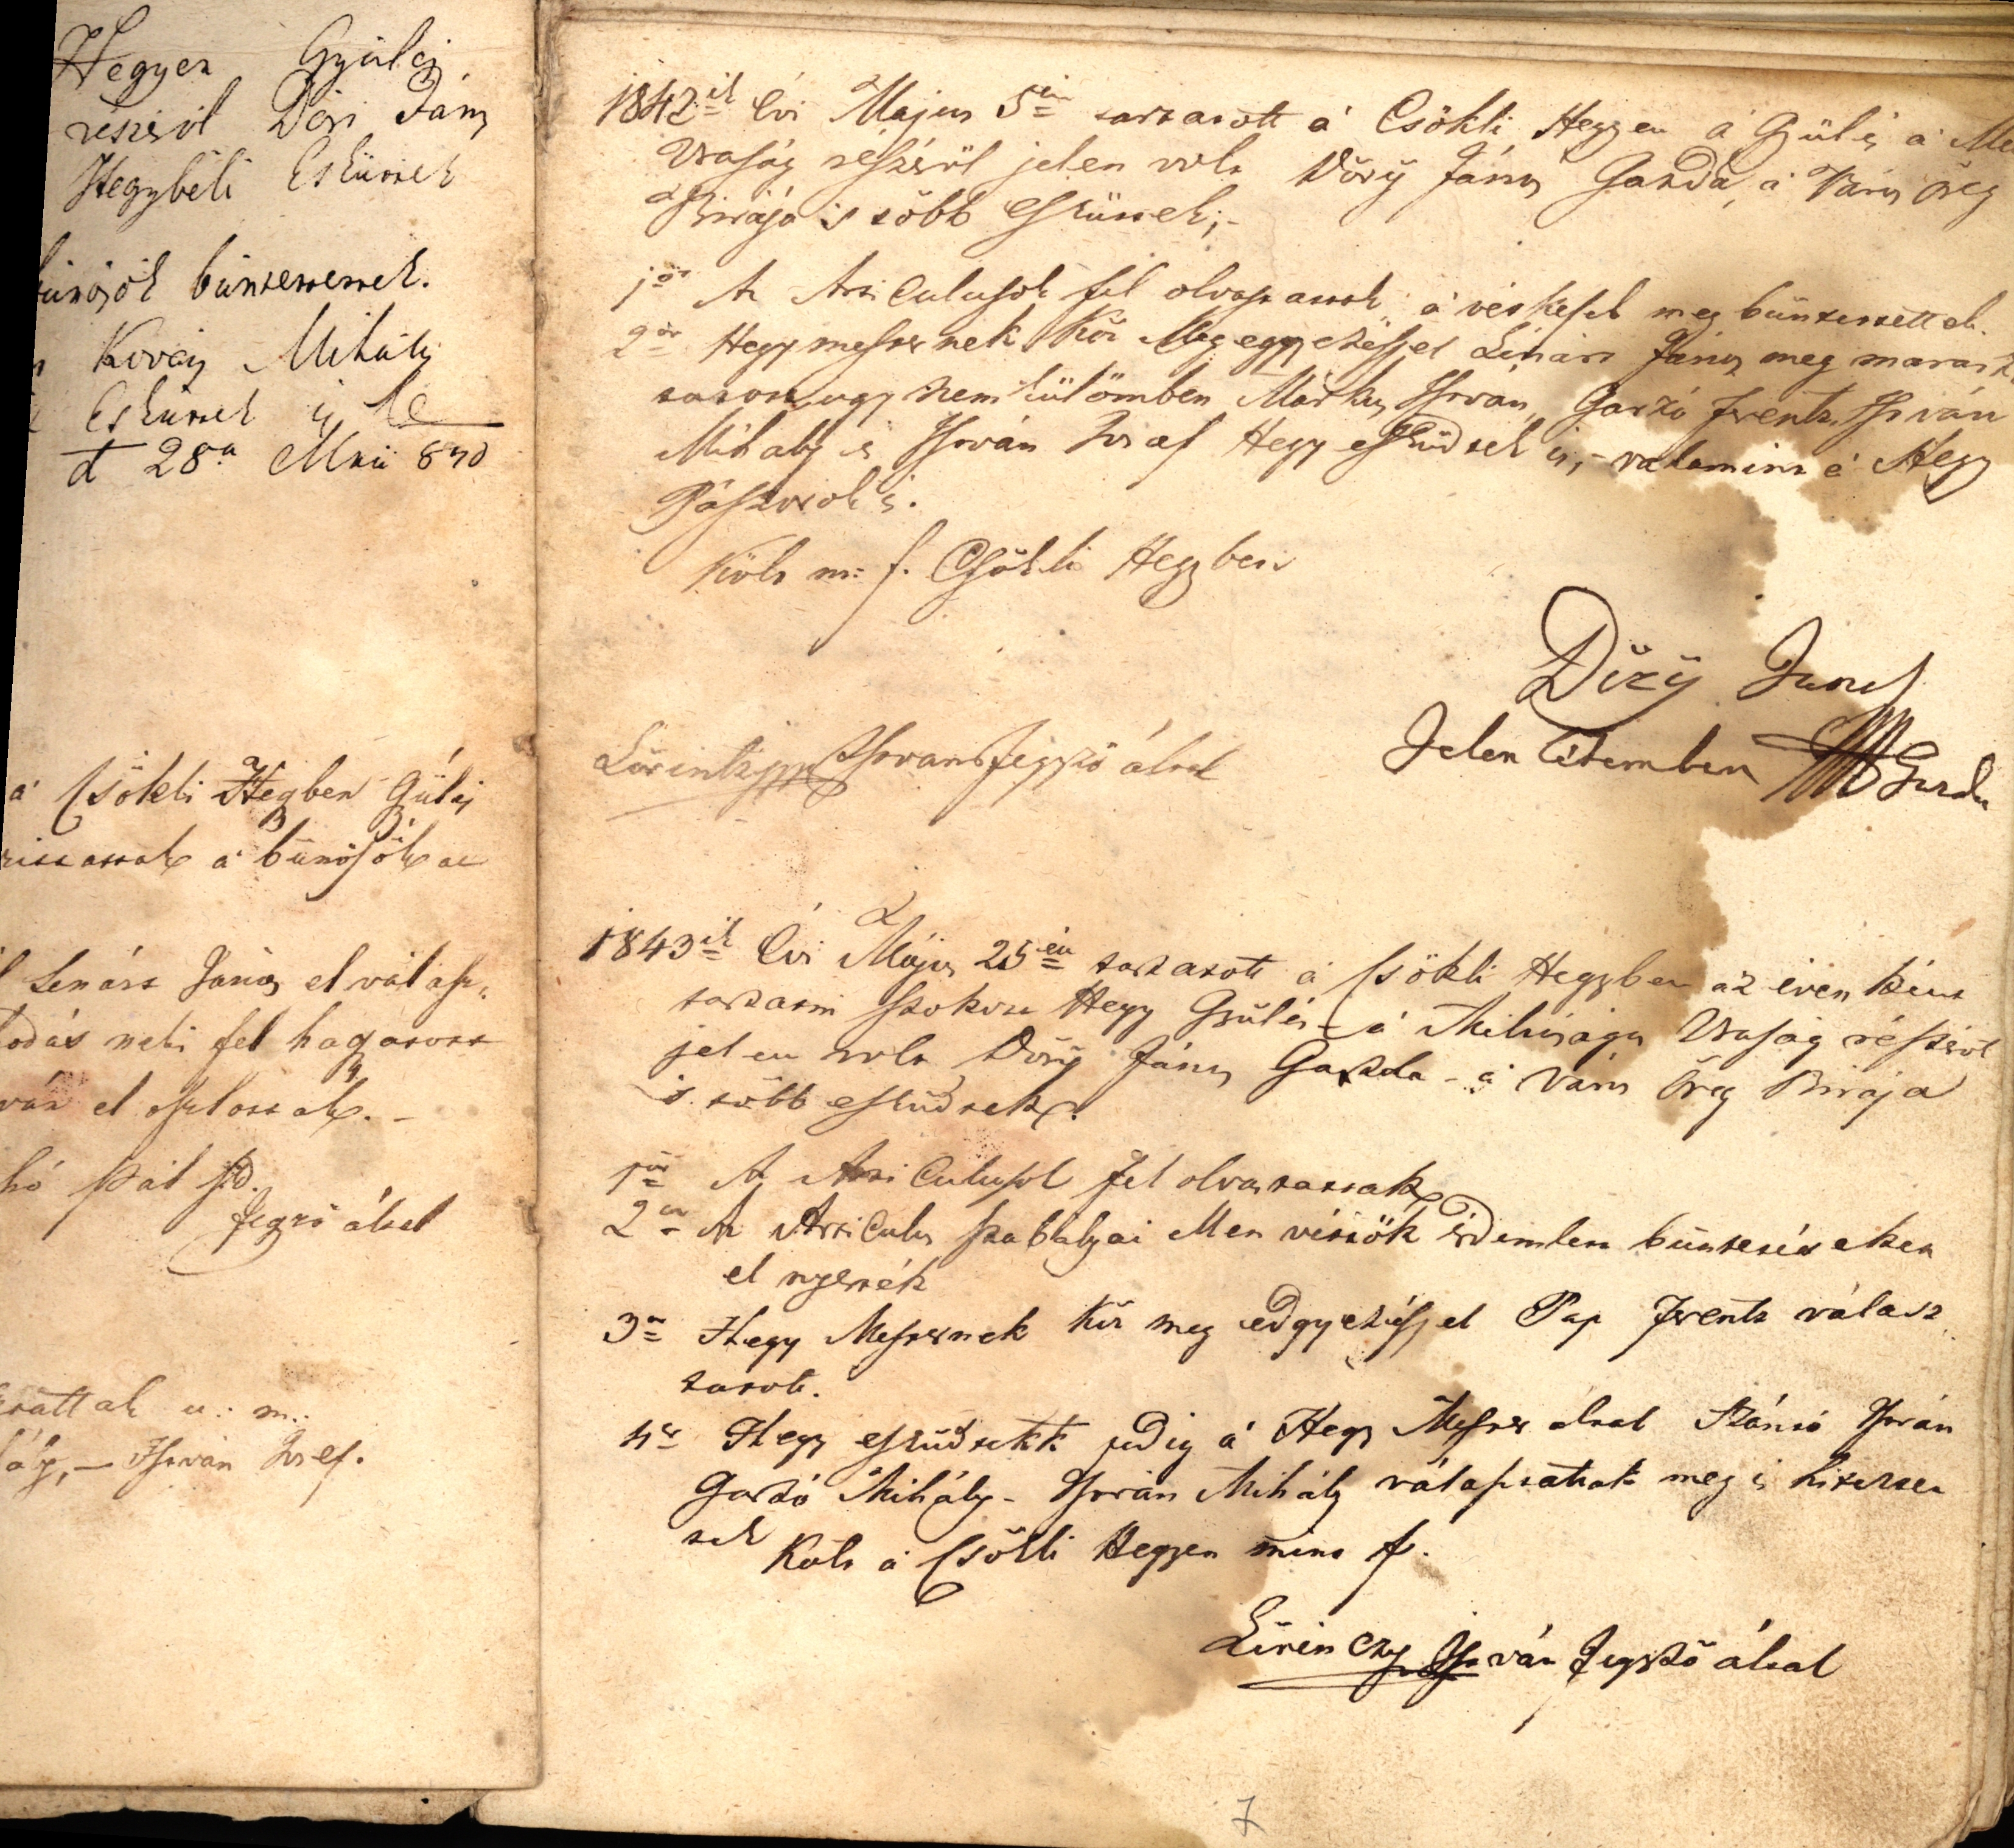 Hegyen Gyülés
részéröl Döri Ján,
Hegybéli Esküttek
bünösök büntettettek.
Kovács Mihály
Esküttek is le
d 28a Maii 840
a' Csökli Hegben Gülés
a' bünösök az
Lenárt János elválasz„
todás neki fel hagatott
ván el oszlottak. –
hó Pál
Jegzö által
u: m:
István Jósef.
1842ik Évi Május 5én tartatott a' Csökli Hegyen a' Gülés a' Mé
Uraság részéröl jelen volt Döry János Gazda, a' Város öreg
Birája 's több Esküttek;-
1ör Az Articulusok fel olvastattak, a' vétkesek meg büntettettek.
2or Hegymesternek Köz Meg egyezéssel Lénárt János meg maraszt
tatott, ugy nem külömben Márkus István, Garzó Ferentz, István
Mihály és István Jósef Hegy esküdtek is,- valamint a' Hegy
Pásztorok is.
Költ m: f. Csökli Hegyben
Döry Janos
Jelen létemben Gazda
Lörintzy István Jegyzö által
1843ik Évi Május 25én tartatott a' Csökli Hegyben az évenként
tartatni szokott Hegy Gyülés - a' Méltóságos Uraság részéröl
jelen volt Döry János Gazda - a' Város Öreg Birája
's több esküdtek.
1ör Az Articulusok fel olvastattak
2or Az Articulus szabályai ellen vétsök érdemlett büntetéseket
el nyerték
3or Hegy Mesternek Köz meg edgyezéssel Pap Ferentz válasz„
tatott.
4er Hegy esküdtekk pedig a' Hegy Mester által Szántó István
Garzó Mihály - István Mihály választattak meg 's hitelte„
tek
Költ a' Csökli Hegyen mint f.
Lörinczy István Jegyzö által
7